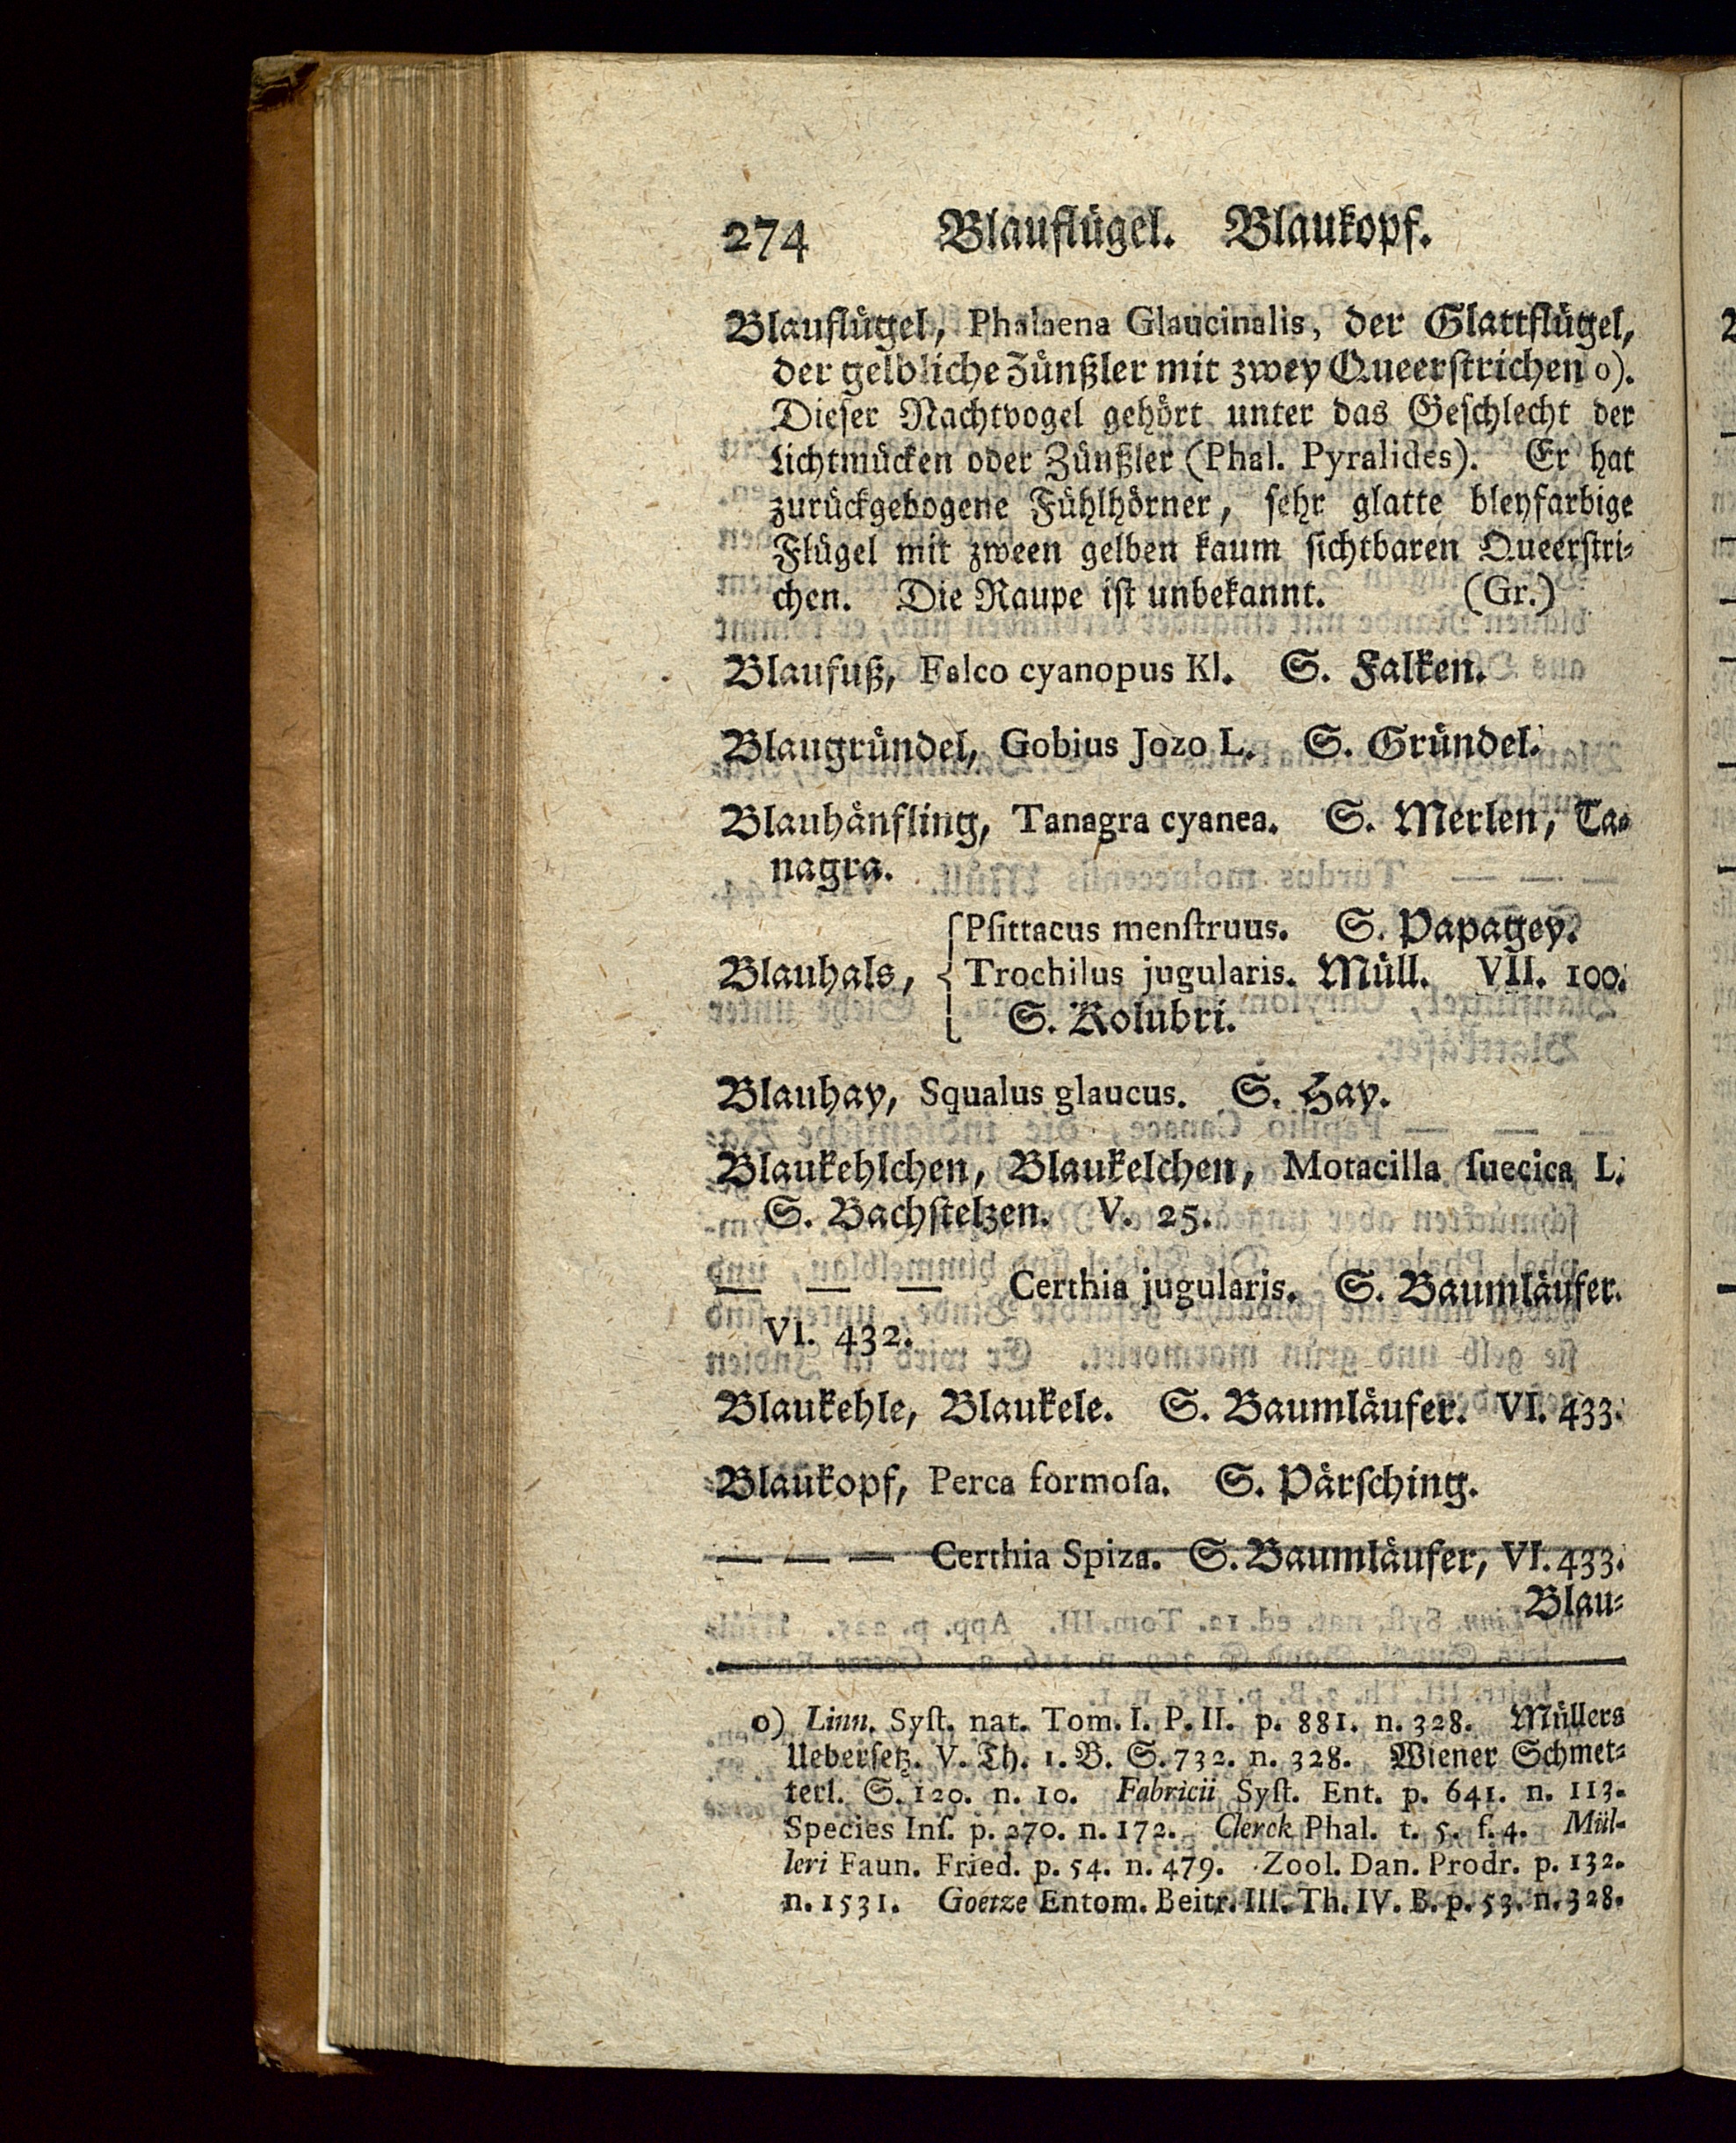 274 Blauflügel. Blaukopf.
Blauflügel, Phalaena Glaucinalis, der Glattflügel,
der gelbliche Zünßler mit zwey Queerstrichen o).
Dieser Nachtvogel gehört unter das Geschlecht der
Lichtmücken oder Zünßler (Phal. Pyralides). Er hat
zurückgebogene Fühlhörner, sehr glatte bleyfarbige
Flügel mit zween gelben kaum sichtbaren Queerstri-
chen. Die Raupe ist unbekannt. (Gr.)
Blaufuß, Falco cyanopus Kl. S. Falken.
Blaugründel, Gobius Jozo L. S. Gründel.
Blauhänfling, Tanagra cyanea. S. Merlen, Ta-
nagra.
Psittacus menstruus. S. Papagey.
Blauhals, Trochilus jugularis. Müll. VII. 100.
S. Kolubri.
Blauhay, Squalus glaucus. S. Hay.
Blaukehlchen, Blaukelchen, Motacilla suecica L.
S. Bachstelzen. V. 25.
— — — Certhia jugularis. S. Baumläufer.
VI. 432.
Blaukehle, Blaukele. S. Baumläufer. VI. 433.
Blaukopf, Perca formosa. S. Pärsching.
— — — Certhia Spiza. S. Baumläufer, VI. 433.
Blau-
o) Linn. Syst. nat. Tom. I. P. II. p. 881. n. 328. Müllers
Uebersetz. V. Th. 1. B. S. 732. n. 328. Wiener Schmet-
terl. S. 120. n. 10. Fabricii Syst. Ent. p. 641. n. 113.
Species Ins. p. 270. n. 172. Clerck Phal. t. 5. f. 4. Mül-
leri Faun. Fried. p. 54. n. 479. Zool. Dan. Prodr. p. 132.
n. 1531. Goetze Entom. Beitr. III. Th. IV. B. p. 53. n. 328.